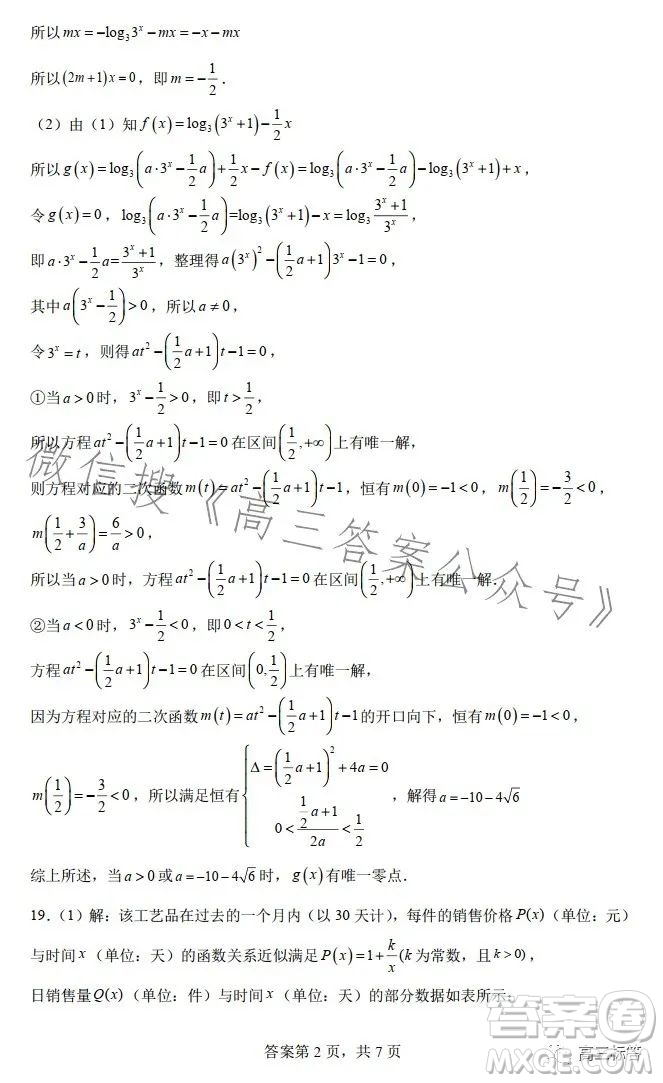 所以mx=-log₃3ˣ-mx=-x-mx
所以(2m+1)x=0，即m=-1/2．
（2）由（1）知f(x)=log₃(3ˣ+1)-1/2x
所以g(x)=log₃(a·3ˣ-1/2a)+1/2x-f(x)=log₃(a·3ˣ-1/2a)-log₃(3ˣ+1)+x，
令g(x)=0，log₃(a·3ˣ-1/2a)=log₃(3ˣ+1)-x=log₃(3ˣ+1)/3ˣ，
即a·3ˣ-1/2a=(3ˣ+1)/3ˣ，整理得a(3ˣ)²-(1/2a+1)3ˣ-1=0，
其中a(3ˣ-1/2)>0，所以a≠0，
令3ˣ=t，则得at²-(1/2a+1)t-1=0，
①当a>0时，3ˣ-1/2>0，即t>1/2，
所以方程at²-(1/2a+1)t-1=0在区间(1/2,+∞)上有唯一解，
则方程对应的二次函数m(t)=at²-(1/2a+1)t-1，恒有m(0)=-1<0，m(1/2)=-3/2<0，
m(1/2+3/a)=6/a>0，
所以当a>0时，方程at²-(1/2a+1)t-1=0在区间(1/2,+∞)上有唯一解．
②当a<0时，3ˣ-1/2<0，即0<t<1/2，
方程at²-(1/2a+1)t-1=0在区间(0,1/2)上有唯一解，
因为方程对应的二次函数m(t)=at²-(1/2a+1)t-1的开口向下，恒有m(0)=-1<0，
m(1/2)=-3/2<0，所以满足恒有{Δ=(1/2a+1)²+4a=0
0<(1/2a+1)/2a<1/2，解得a=-10-4√6
综上所述，当a>0或a=-10-4√6时，g(x)有唯一零点．
19．（1）解：该工艺品在过去的一个月内（以30天计），每件的销售价格P(x)（单位：元）
与时间x（单位：天）的函数关系近似满足P(x)=1+k/x(k为常数，且k>0)，
日销售量Q(x)（单位：件）与时间x（单位：天）的部分数据如表所示：
答案第2页，共7页
微信搜《高三答案公众号》
答案圈
高三标答
MXQE.COM